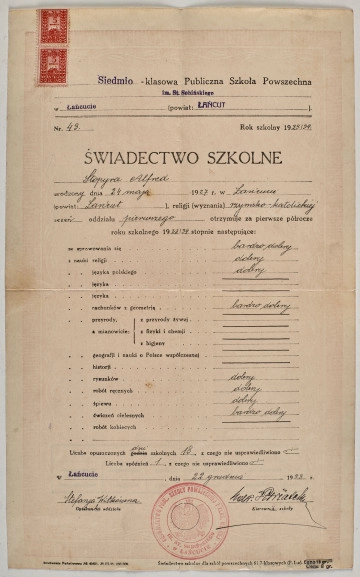 Siedmio -klasowa Publiczna Szkoła Powszechna
im. St. Sobińskiego
w Łańcucie (powiat: ŁAŃCUT ).
Nr. 43. Rok szkolny 1933/34.
ŚWIADECTWO SZKOLNE
Stopyra Alfred
urodzony dnia 24 maja 1927 r. w Łańcucie
(powiat: Łańcut ), religii (wyznania) rzymsko-katolickiej
uczeń oddziału pierwszego otrzymuje za pierwsze półrocze
roku szkolnego 1933/34 stopnie następujące:
za sprawowanie się bardzo dobry
z nauki religii dobry
" " języka polskiego dobry
" " języka
" " języka
" " rachunków z geometrją bardzo dobry
" " przyrody, z przyrody żywej
a mianowicie: z fizyki i chemji
z higjeny
" " geografji i nauki o Polsce współczesnej
" " historji
" " rysunków dobry
" " robót ręcznych dobry
" " śpiewu dobry
" " ćwiczeń cielesnych bardzo dobry
" " robót kobiecych
Liczba opuszczonych dni godzin szkolnych 18, z czego nie usprawiedliwiono
Liczba spóźnień 1, z czego nie usprawiedliwiono
w Łańcucie dnia 22 grudnia 1933.
Stefanja
Opiekunka oddziału Kierownik szkoły
W ŁAŃCUCIE
Świadectwo szkolne dla szkół powszechnych